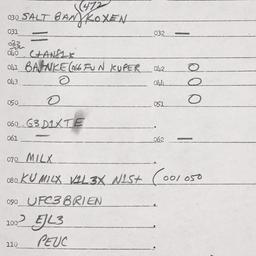 (472
030 SALT BAN/KOXEN
031 = 032 —
040 C+AN81K
041 BANKE(066 FUN KUPER 042 O
043 O 044 O
050 O 051 O
060 G3D1XTE
061 — 062 —
070 MILX
080 KU MILX V1L3X N1S+ (001 050
090 UFC3BRIEN
100 EJL3
110 PEUC